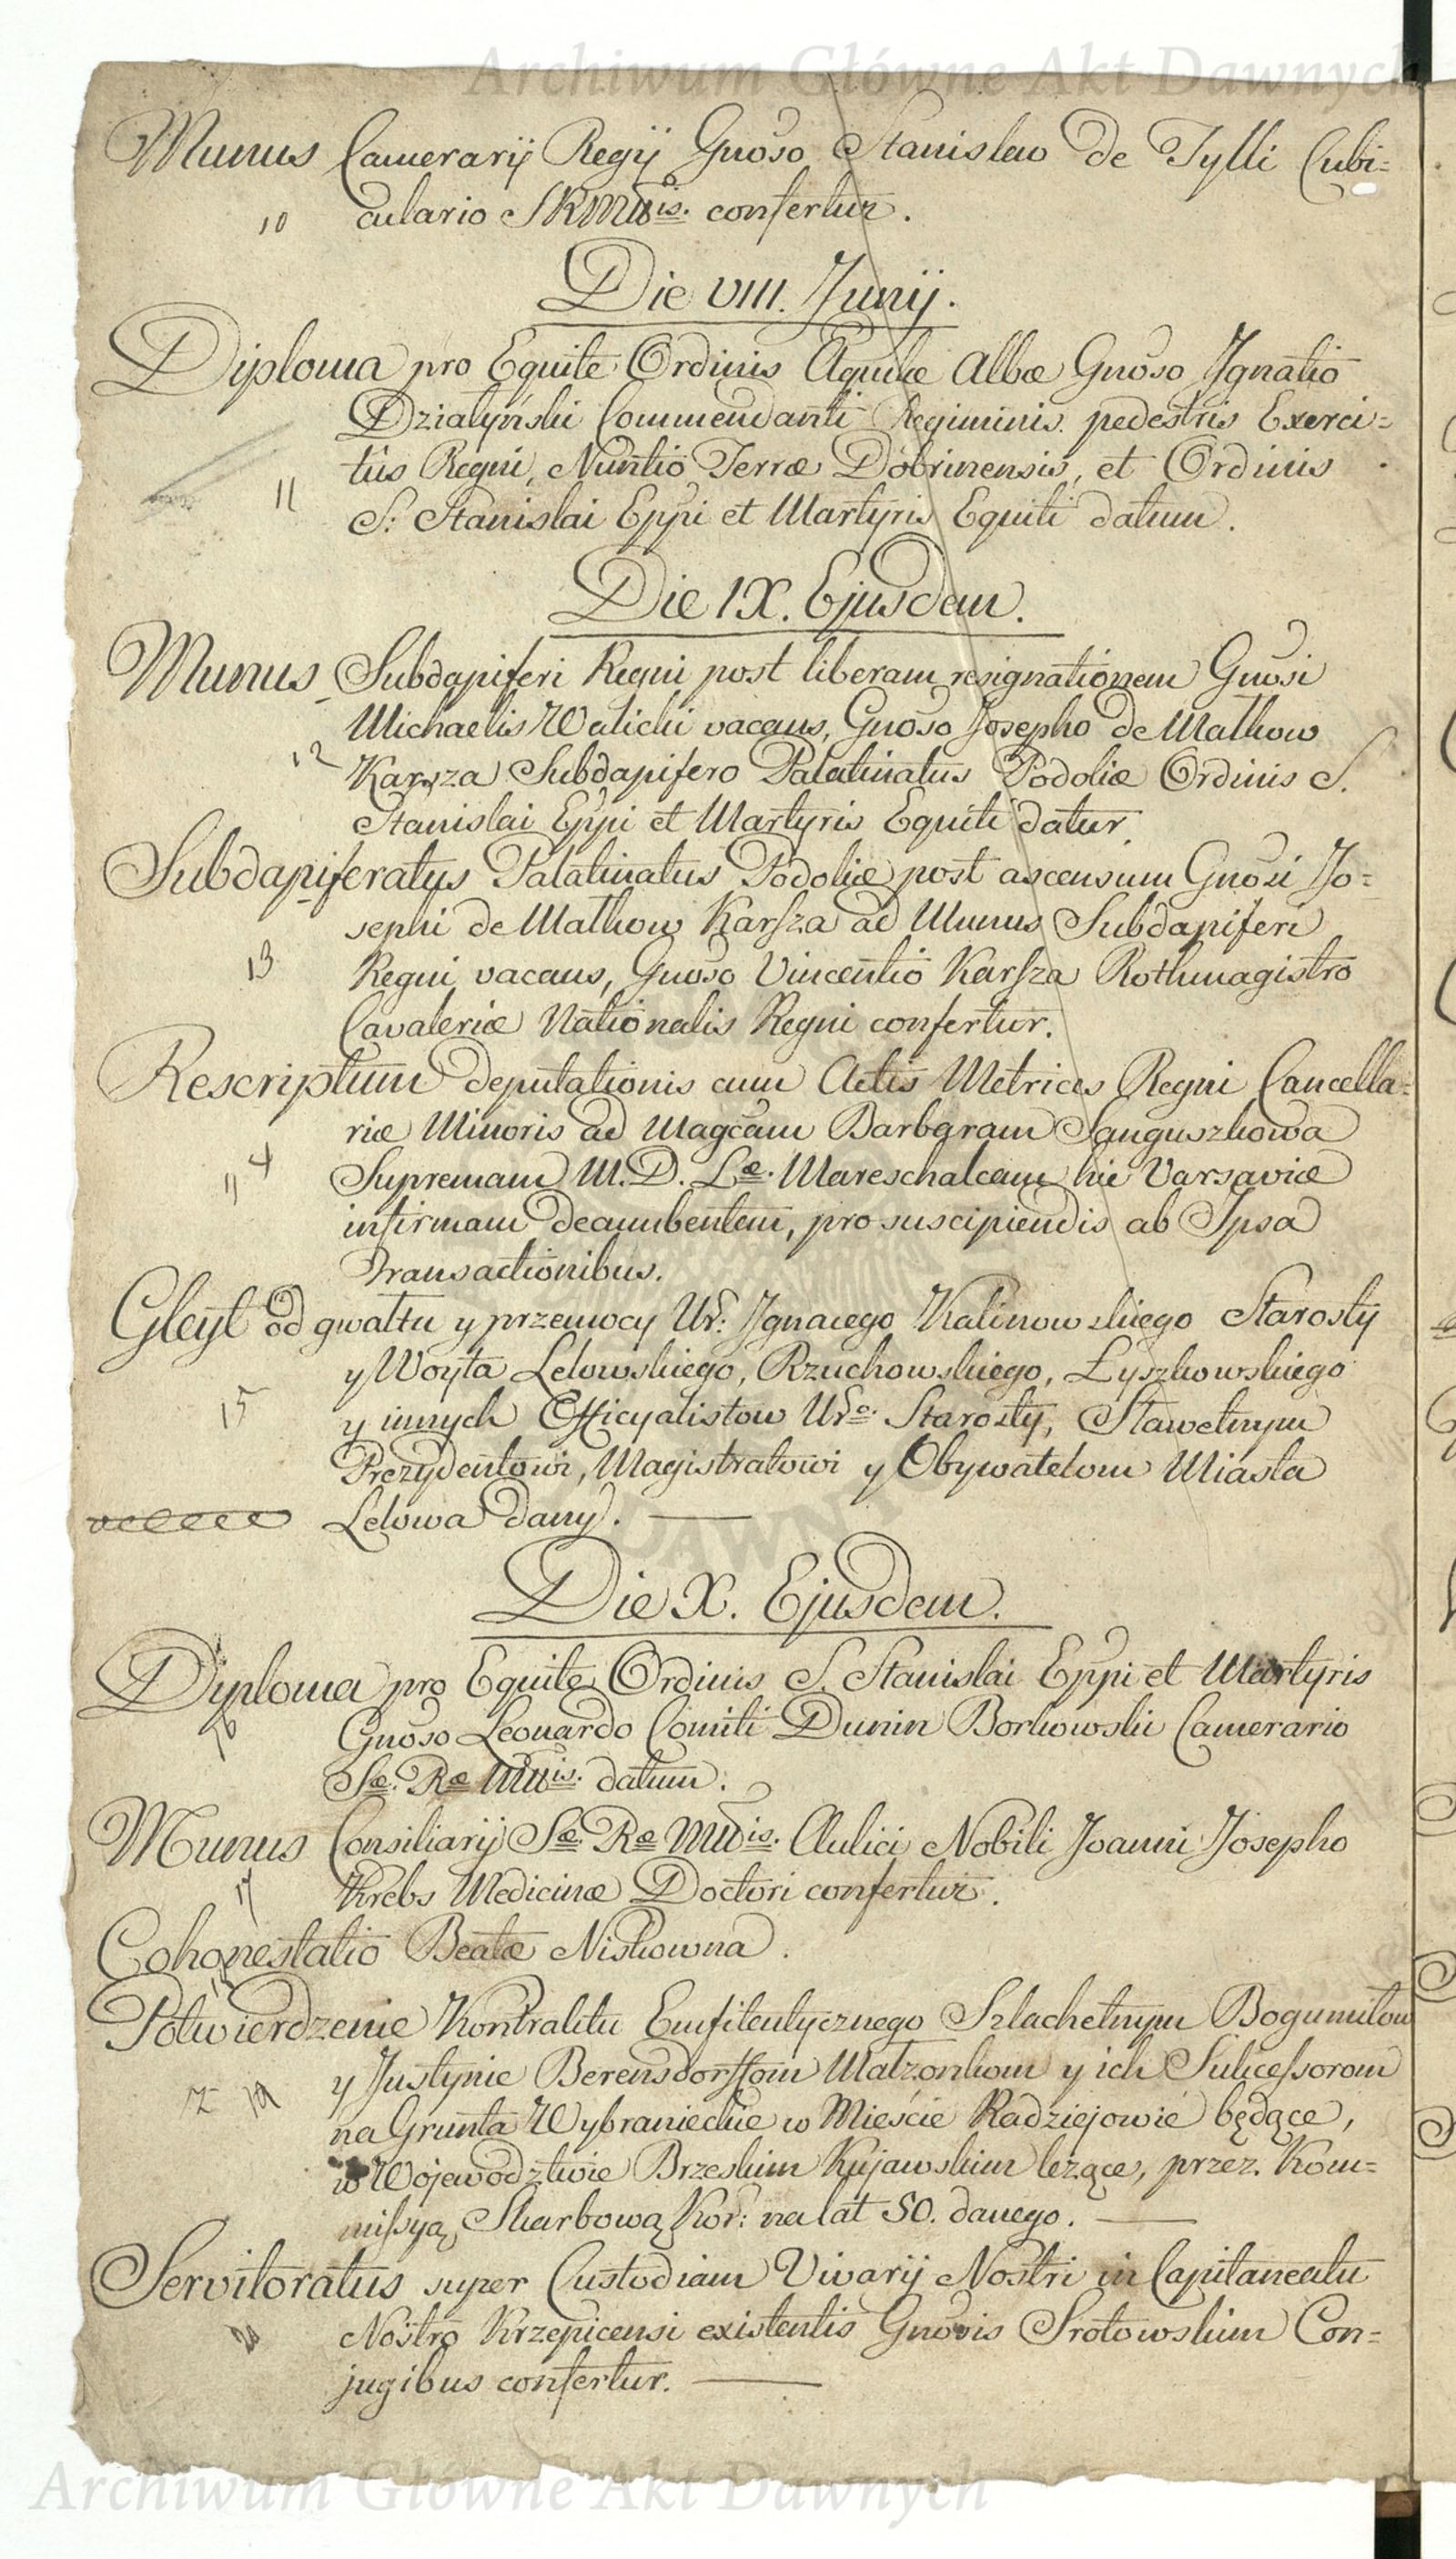 Archiwum Główne Akt Dawnych
Munus Camerarij Regij Gnoso Stanislao de Tylli Cubi=
10 culario SRMttis. confertur.
Die VIII. Junij.
Diploma pro Equite Ordinis Aquilæ Albæ Gnoso Ignatio
Działyński Commendanti Regiminis pedestris Exerci=
tûs Regni, Nuntio Terræ Dobrinensis, et Ordinis
11 S: Stanislai Eppi et Martyris Equiti datum.
Die IX. Ejusdem.
Munus Subdapiferi Regni post liberam resignationem Gnosi
Michaelis Walicki vacans, Gnoso Josepho de Matkow
12 Karsza Subdapifero Palatinatus Podoliæ Ordinis S.
Stanislai Eppi et Martyris Equiti datur.
Subdapiferatus Palatinatus Podoliæ post ascensum Gnosi Jo=
sephi de Matkow Karsza ad Munus Subdapiferi
13 Regni vacans, Gnoso Vincentio Karsza Rothmagistro
Cavaleriæ Nationalis Regni confertur.
Rescriptum deputationis cum Actis Metrices Regni Cancella=
riæ Minoris ad Magcam Barbaram Sanguszkowa
14 Supremam M.D.Læ. Mareschalcam hic Varsaviæ
infirmam decumbentem, pro suscipiendis ab Ipsa
Transactionibus.
Gleyt od gwałtu y przemocy Ur: Ignacego Kalinowskiego Starosty
y Woyta Lelowskiego, Rzuchowskiego, Łyszkowskiego
15 y innych Officyalistow Uro. Starosty, Sławetnym
Prezydentowi, Magistratowi y Obywatelom Miasta
Lelowa dany.
Die X. Ejusdem.
Diploma pro Equite Ordinis S. Stanislai Eppi et Martyris
16 Gnoso Leonardo Comiti Dunin Borkowski Camerario
Sæ. Ræ Mttis. datum.
Munus Consiliarij Sæ. Ræ Mttis. Aulici Nobili Joanni Josepho
17 Krebs Medicinæ Doctori confertur.
Cohonestatio Beatæ Niskowna.
18
Potwierdzenie Kontraktu Emfiteutycznego Szlachetnym Bogumiłow
y Justynie Berensdorffom Małżonkom y ich Sukcessorom
12 19 na Grunta Wybranieckie w Mieście Radziejowie będące,
w Wojewodztwie Brzeskim Kujawskim leżące, przez Kom=
missyą Skarbową Kor: na lat 50. danego.
Servitoratus super Custodiam Vivarij Nostri in Capitaneatu
20 Nostro Krzepicensi existentis Gnosis Srotowskim Con=
jugibus confertur.
Archiwum Główne Akt Dawnych